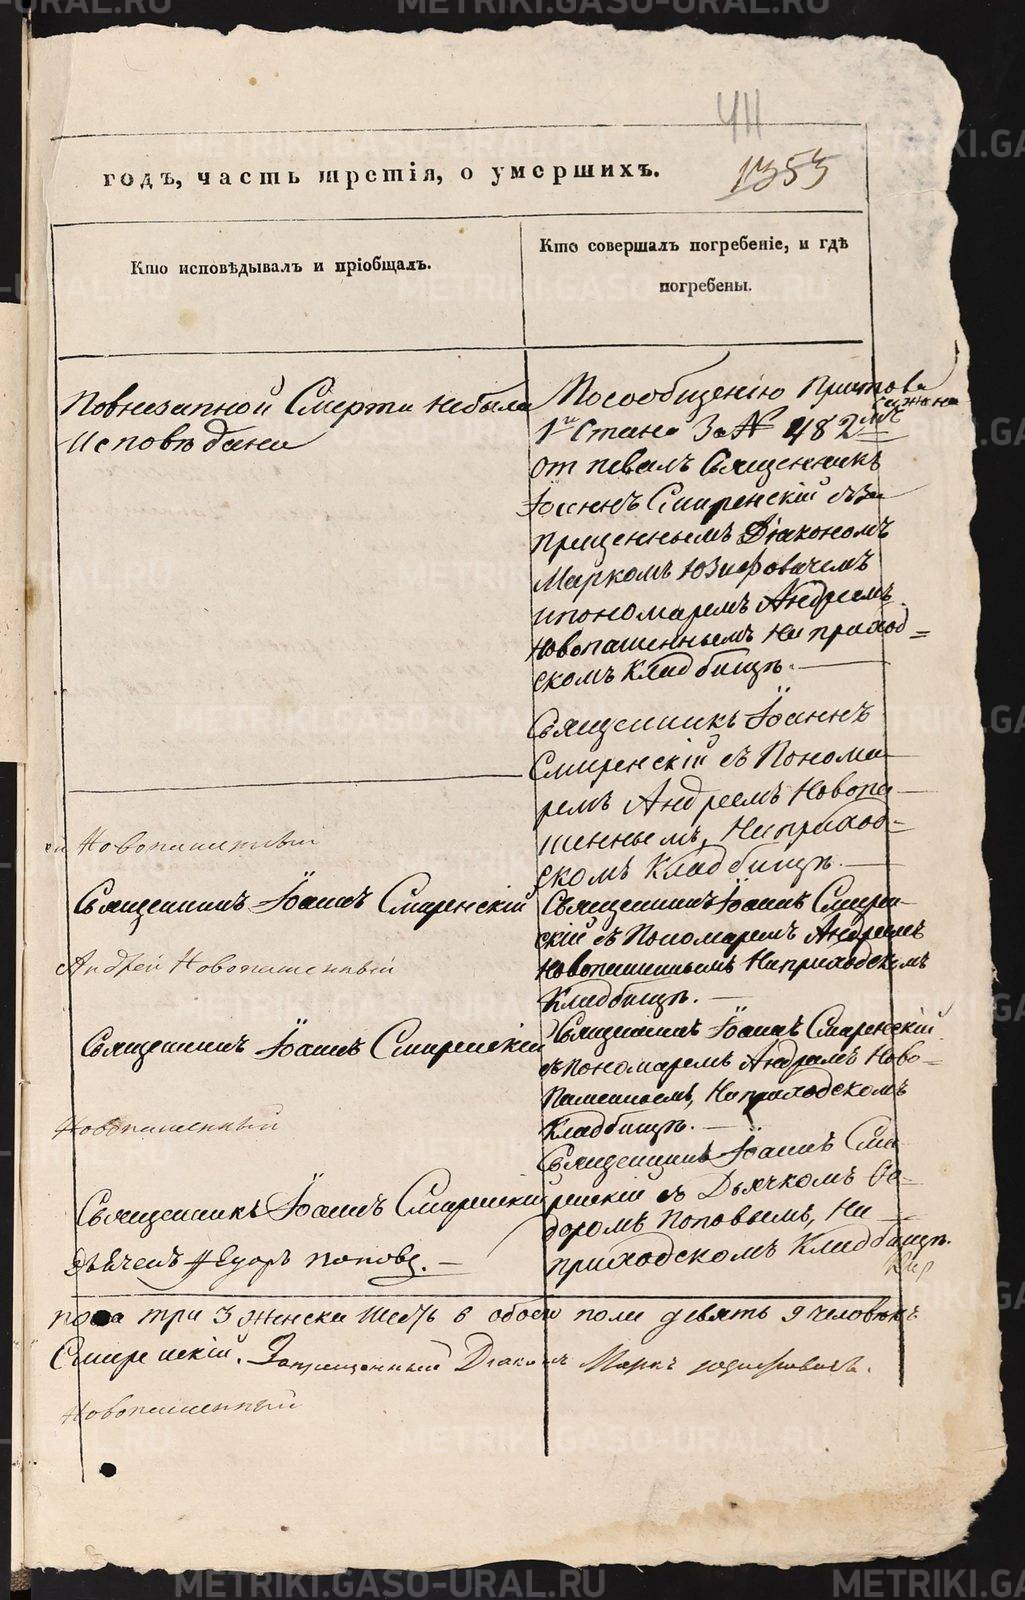 METRIKI.GASO-URAL.RU
411
1353
годъ, часть третія, о умершихъ.
Кто исповѣдывалъ и пріобщалъ.
Кто совершалъ погребеніе, и гдѣ
погребены.
Повнезапной Смерти небыла
Исповѣдана
Посообщенію Пристава
1го Стана За № 482мъ
отпевалъ Священникъ
Іоаннъ Смиренскій съ за
прещеннымъ Діакономъ
Маркомъ Юзифовичемъ
ипономаремъ Андреемъ
Новопашеннымъ На приход=
скомъ Кладбищѣ.
Священникъ Іоаннъ
Смиренскій съ Понома
ремъ Андреемъ Новопа
шеннымъ, На приход=
скомъ Кладбищѣ.
Новопашенный
Священникъ Іоаннъ Смиренскій
Священникъ Іоаннъ Смирен-
скій съ Пономаремъ Андреемъ
Новопашеннымъ На приходскомъ
Кладбищѣ.
Андрей Новопашенный
Священникъ Іоаннъ Смиренскій
Священникъ Іоаннъ Смиренскій
съ пономаремъ Андреемъ Ново-
Пашеннымъ, На приходскомъ
Кладбищѣ.
Новопашенный
Священникъ Іоаннъ Сми
Священникъ Іоаннъ Смиренскій
ренскій съ Дьячкомъ Ѳе-
дьячекъ Ѳедоръ Поповъ.
доромъ Поповымъ, На
приходскомъ Кладбищѣ.
пола три 3 женска шесть 6 обоего пола девять 9 человѣкъ
Смиренскій. Запрещенный Діаконъ Маркъ Юзифовичъ.
Новопашенный